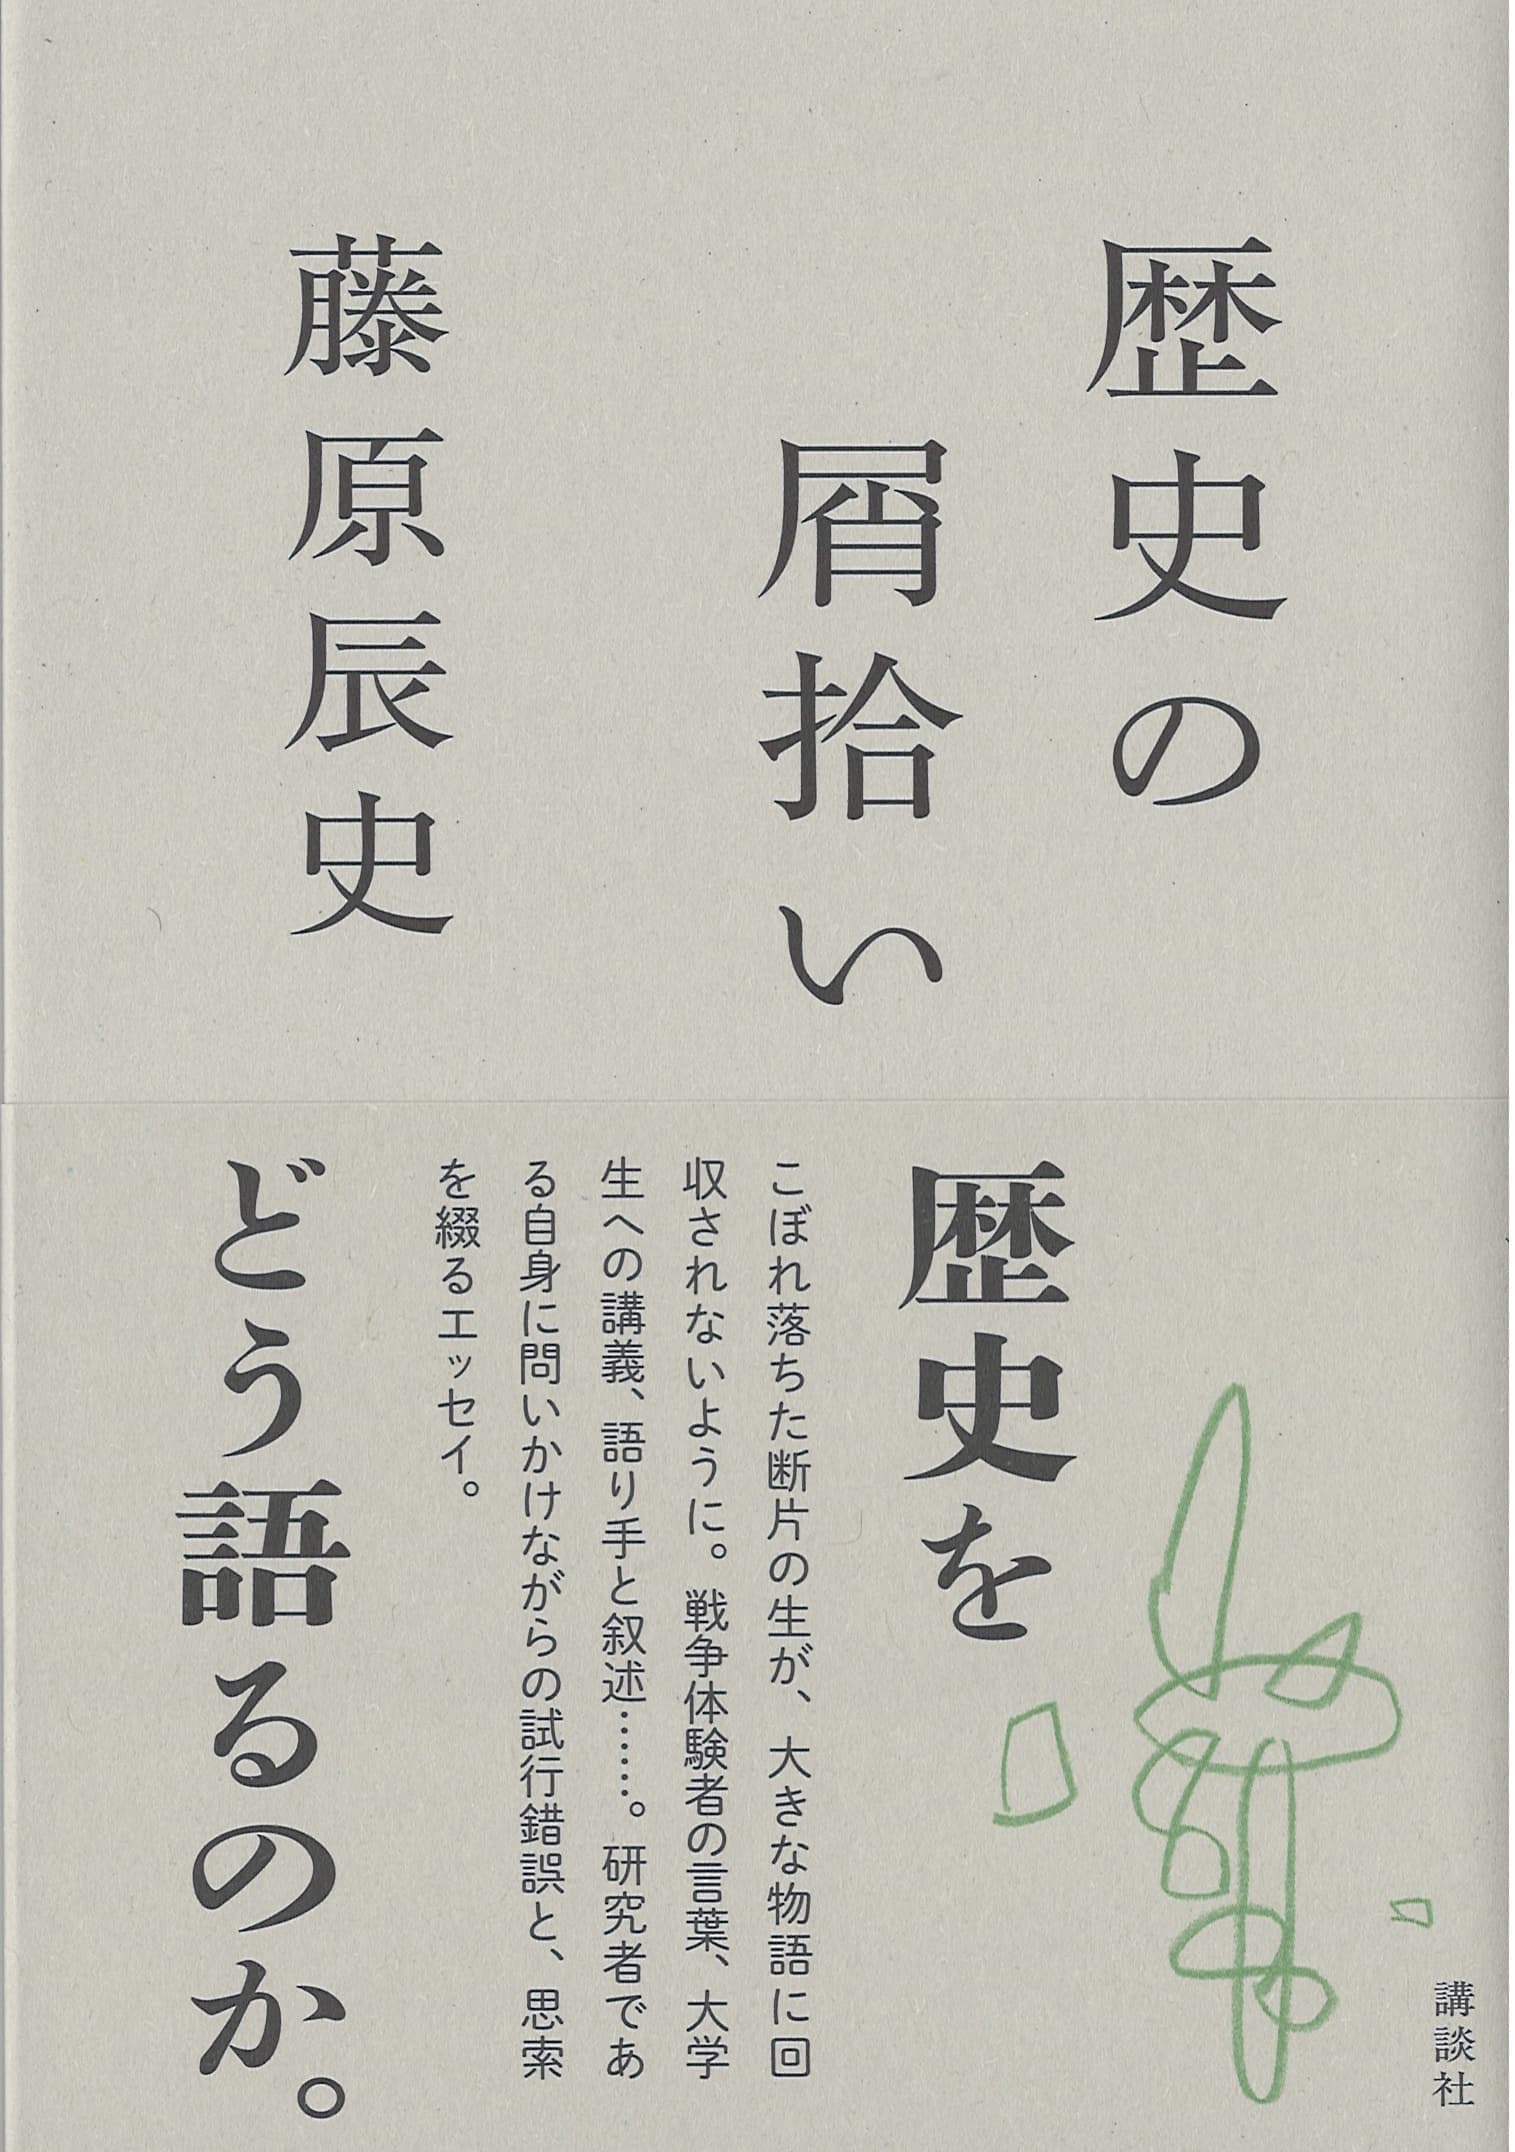 歴史の
屑拾い
藤原辰史
歴史を
こぼれ落ちた断片の生が、大きな物語に回
収されないように。戦争体験者の言葉、大学
生への講義、語り手と叙述……。研究者であ
る自身に問いかけながらの試行錯誤と、思索
を綴るエッセイ。
どう語るのか。
講談社